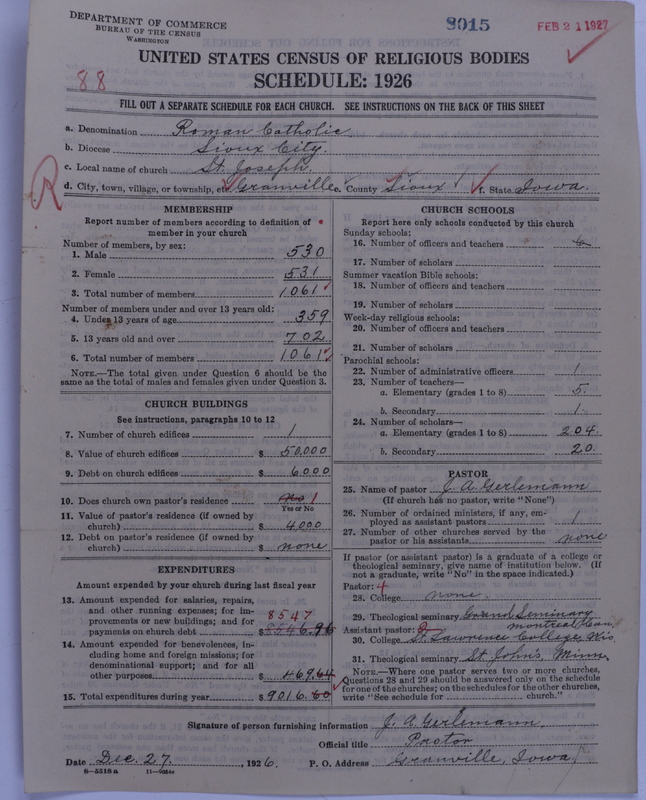 DEPARTMENT OF COMMERCE
BUREAU OF THE CENSUS
WASHINGTON
8915
FEB 21 1927
UNITED STATES CENSUS OF RELIGIOUS BODIES
88
SCHEDULE: 1926
FILL OUT A SEPARATE SCHEDULE FOR EACH CHURCH. SEE INSTRUCTIONS ON THE BACK OF THIS SHEET
a. Denomination Roman Catholic
b. Diocese Sioux City.
c. Local name of church St. Joseph.
R
d. City, town, village, or township, etc. Granville e. County Sioux f. State Iowa.
MEMBERSHIP
Report number of members according to definition of
member in your church
Number of members, by sex:
1. Male 530
2. Female 531
3. Total number of members 1061
Number of members under and over 13 years old:
4. Under 13 years of age 359
5. 13 years old and over 702
6. Total number of members 1061
NOTE.—The total given under Question 6 should be the
same as the total of males and females given under Question 3.
CHURCH BUILDINGS
See instructions, paragraphs 10 to 12
7. Number of church edifices 1
8. Value of church edifices $ 50,000
9. Debt on church edifices $ 6000
10. Does church own pastor's residence 1
Yes or No
11. Value of pastor's residence (if owned by
church) $ 4,000
12. Debt on pastor's residence (if owned by
church) $ none
EXPENDITURES
Amount expended by your church during last fiscal year
13. Amount expended for salaries, repairs,
and other running expenses; for im-
provements or new buildings; and for
8547
payments on church debt $ 8546.96
14. Amount expended for benevolences, in-
cluding home and foreign missions; for
denominational support; and for all
other purposes $ 469.64
15. Total expenditures during year $ 9016.60
CHURCH SCHOOLS
Report here only schools conducted by this church
Sunday schools:
16. Number of officers and teachers 6
17. Number of scholars
Summer vacation Bible schools:
18. Number of officers and teachers
19. Number of scholars
Week-day religious schools:
20. Number of officers and teachers
21. Number of scholars
Parochial schools:
22. Number of administrative officers 1
23. Number of teachers—
a. Elementary (grades 1 to 8) 5.
b. Secondary 1.
24. Number of scholars—
a. Elementary (grades 1 to 8) 204
b. Secondary 20.
PASTOR
25. Name of pastor J. A. Gerlemann
(If church has no pastor, write "None")
26. Number of ordained ministers, if any, em-
ployed as assistant pastors 1
27. Number of other churches served by the
pastor or his assistants none
If pastor (or assistant pastor) is a graduate of a college or
theological seminary, give name of institution below. (If
not a graduate, write "No" in the space indicated.)
Pastor: 4
28. College none.
29. Theological seminary Grand Seminary
Montreal Can.
Assistant pastor:
30. College St. Lawrence College, Wis
31. Theological seminary St. John's, Minn.
NOTE.—Where one pastor serves two or more churches,
Questions 28 and 29 should be answered only on the schedule
for one of the churches; on the schedules for the other churches,
write "See schedule for church."
Signature of person furnishing information J. A. Gerlemann.
Official title Pastor
Date Dec. 27. , 1926. P. O. Address Granville, Iowa
8—5518a